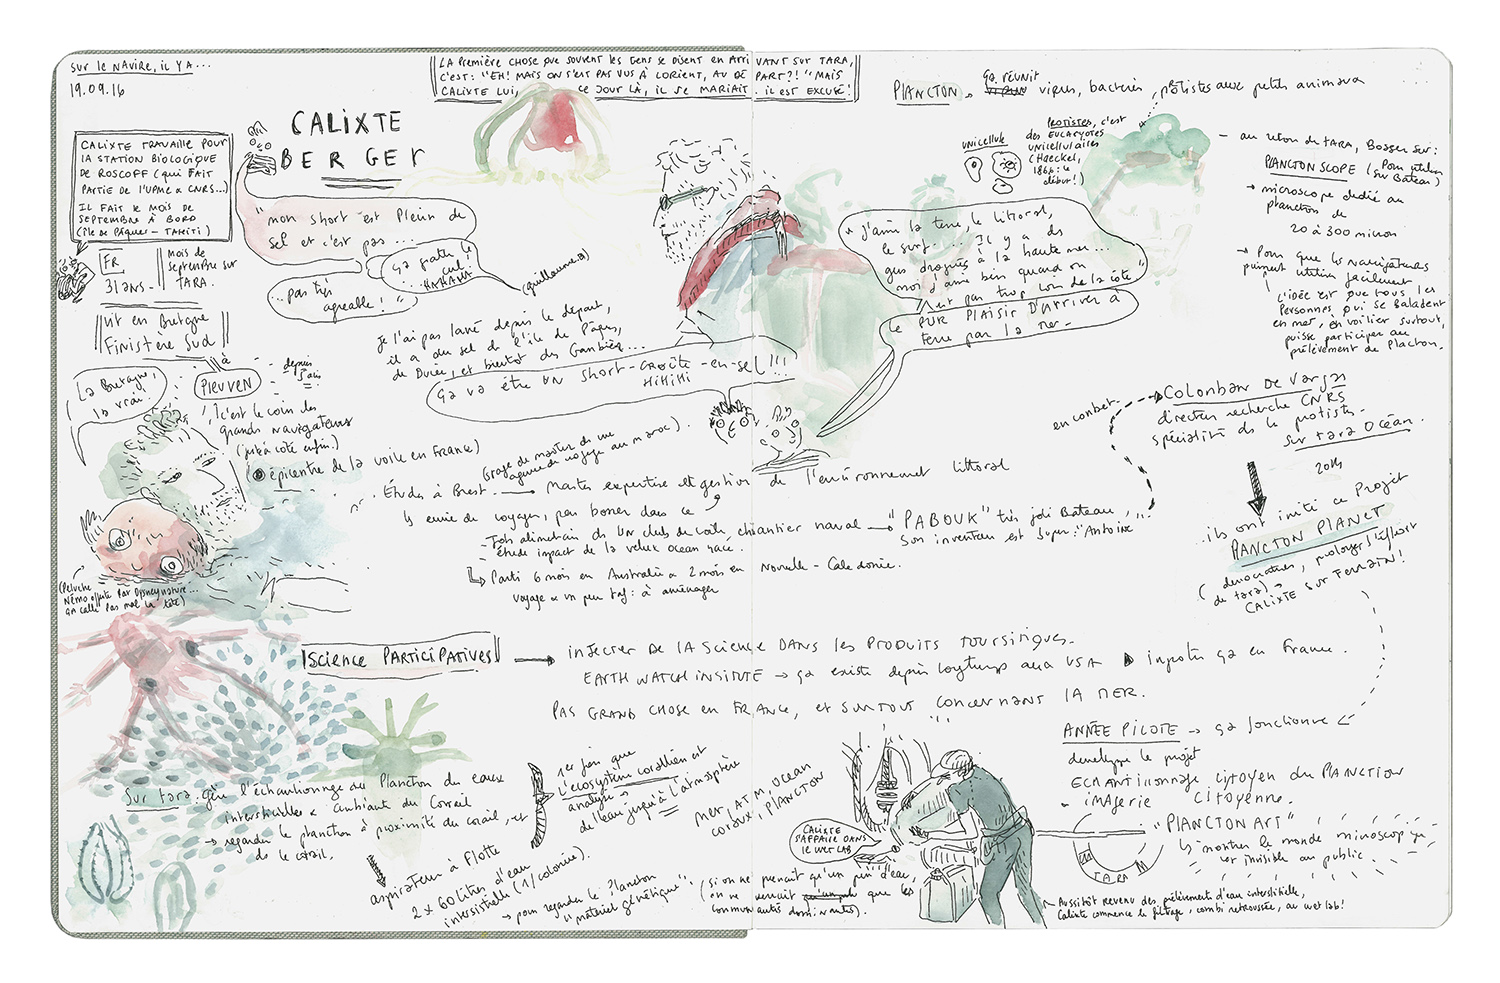 sur le navire, il y a...
19.09.16
LA PREMIÈRE CHOSE QUE SOUVENT LES GENS SE DISENT EN ARRIVANT SUR TARA,
C'EST: "EH! MAIS ON S'EST PAS VUS À LORIENT, AU DÉPART?!" MAIS
CALIXTE LUI, CE JOUR LÀ, IL SE MARIAIT. IL EST EXCUSÉ!
CALIXTE
BERGER
CALIXTE TRAVAILLE POUR
LA STATION BIOLOGIQUE
DE ROSCOFF (QUI FAIT
PARTIE DE L'UPMC & CNRS...)
IL FAIT LE MOIS DE
SEPTEMBRE À BORD
(ÎLE DE PÂQUES - TAHITI)
FR
31 ANS -
mois de
septembre sur
TARA.
vit en Bretagne
Finistère Sud
à
PLEUVEN
depuis
5 ans
La Bretagne,
la vraie!
c'est le coin des
grands navigateurs
(juste à côté enfin.)
épicentre de la voile en France)
"mon short est plein de
sel et c'est pas...
...pas très
agréable!"
ça gratte le
cul!
HAHAHA
(guillaume B)
je l'ai pas lavé depuis le départ,
il a du sel de l'île de Pâques,
de Ducie, et bientôt des Gambier...
ça va être UN short-croûte-en-sel!!!
HiHiHi
"j'aime la terre, le littoral,
le surf... Il y a des
gens drogués à la haute mer...
moi j'aime bien quand on
n'est pas trop loin de la côte"
le PUR PLAISIR D'ARRIVER à
terre par la mer-
PLANCTON → ça réunit
virus, bactéries, protistes aux petits animaux
unicellule
PROTISTES, c'est
des EUCARYOTES
unicellulaires
(Haeckel,
1866: le
début!)
- au retour de TARA, Bosser sur:
PLANCTON SCOPE (Pour utiliser
sur Bateau)
→ microscope dédié au
plancton de
20 à 300 micron
→ Pour que les navigateurs
puissent utiliser facilement
L'idée est que tous les
Personnes qui se baladent
en mer, en voilier surtout,
puisse participer au
prélèvement de Plancton.
en contact
Colomban De Vargas
directeur recherche CNRS
spécialité ds le protistes-
sur tara Océan.
2014
...ils ont initié ce Projet
PLANCTON PLANET
de tara)
CALIXTE SUR TERRAIN!
(stage de master ds une
agence de voyage au maroc).
. Études à Brest. → Master expertise et gestion de l'environnement littoral
↳ envie de voyager, pas bosser dans ce
- Job alimentaire ds un club de voile, chantier naval → "PABOUK" très joli Bateau,
son inventeur est super: "Antoine"
- étude impact de la velux ocean race.
↳ Parti 6 mois en Australie & 2 mois en Nouvelle-Calédonie.
voyage & un peu taf: à aménager
(Peluche
Némo offerte par Disneynature...
ça cale pas mal la tête)
SCIENCE PARTICIPATIVES → injecter DE LA SCIENCE DANS LES PRODUITS TOURISTIQUES.
EARTH WATCH INSTITUTE → ça existe depuis longtemps aux USA ▶ importer ça en France.
PAS GRAND CHOSE EN FRANCE, et SURTOUT CONCERNANT LA MER.
ANNÉE PILOTE → ça fonctionne
développe le projet
ECHANTILLONNAGE citoyen du PLANCTON
- IMAGERIE CITOYENNE.
"PLANCTON ART"
↳ montrer le monde microscopique
invisible au public.
TARA
Sur tara: gère l'échantillonnage du Plancton des eaux
interstitielles & ambiante du Corail
→ regarder le plancton à proximité du corail, et
ds le corail.
1er fois que
l'écosystème corallien est
analysé
de l'eau jusqu'à l'atmosphère
MER, ATM, OCEAN
CORAUX, PLANCTON
aspirateur à flotte
2 x 60 litres d'eau
interstitielle (1/colonie).
→ pour regarder le Plancton
"matériel génétique".
(si on ne prenait qu'un peu d'eau,
on ne verrait que les
communautés dominantes).
CALIXTE
S'AFFAIRE DANS
LE WET LAB
Aussitôt revenu des prélèvements d'eau interstitielle,
Calixte commence le filtrage, combi retroussée, au wet lab!